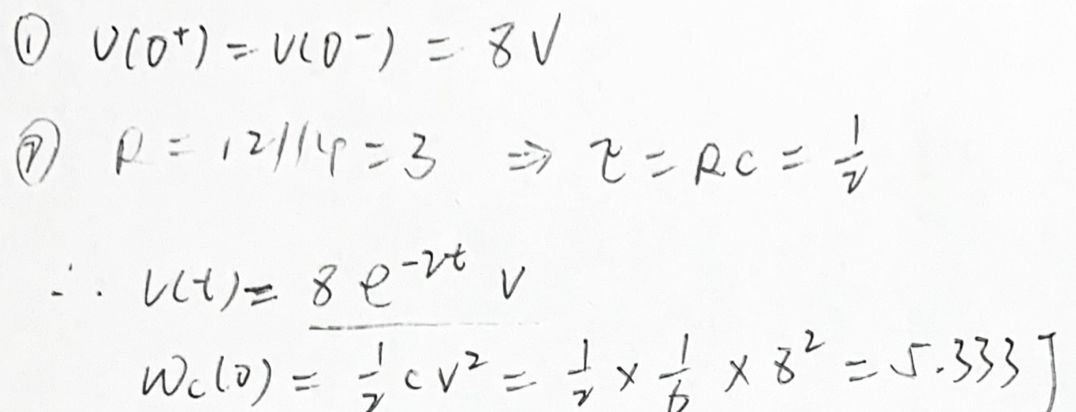 ① v(0⁺) = v(0⁻) = 8V
② R = 12||4 = 3 ⇒ τ = RC = 1/2
∴ v(t) = 8 e^{-2t} V
Wc(0) = 1/2 C V² = 1/2 × 1/6 × 8² = 5.333 J